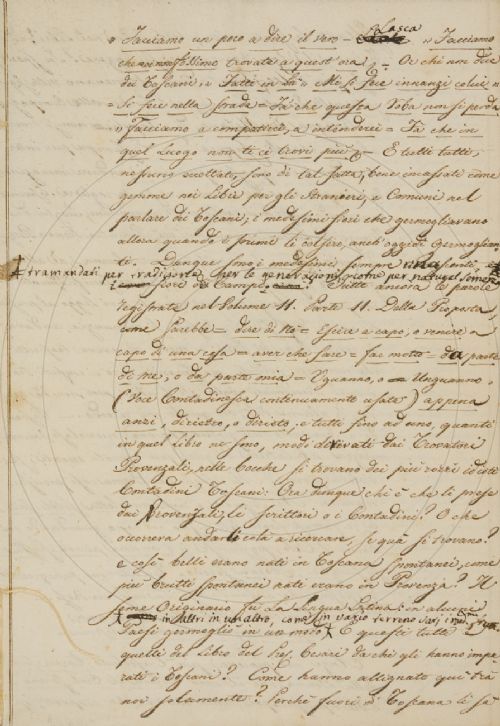 " Facciamo un poco a dire il vero = Lasca " Facciamo
che noi non fossimo trovate a quest'ora, = O chi non dice
dei Toscani, " Fatti in là " Mi si fece innanzi colui "
= Si fece nella strada = Fà che questa Roba non si perda
" Facciamo a compatirci, a intenderci = Fà che in
quel Luogo non ti ci trovi più = E tutti tutti,
nessuno eccettuato, sono di tal fatta, bene incassati come
gemme nei Libri per gli Stranieri, e Comuni nel
parlare dei Toscani; i medesimi fiori che germogliavano
allora quando i primi li colsero, anch'oggidì germoglian
te. Dunque sono i medesimi, sempre
tramandati per tradizione per le generazioni come per natural semenza
fiori di Campo. Tutte ancora le parole
registrate nel Volume 11. Parte 11. Della Proposta,
come sarebbe = dire di nò = Escire a capo, o venire a
capo di una cosa = aver che fare = far motto = da parte
di me, o da parte mia = Uguanno, o Unguanno,
(Voce Contadinesca continuamente usata) appena
anzi, dirietro, o dirieto, e tutte fino ad uno, quanti
in quel Libro ne sono, modi derivati dai Trovatori
Provenzali, nelle bocche si trovano dei più rozzi idioti
Contadini Toscani. Ora dunque chi è che li prese
dai Provenzali, li scrittori o i Contadini? O che
occorreva andarli colà a ricercare, se quà si trovano?
e così belli erano nati in Toscana spontanei, come
più brutti spontanei nati erano in Provenza? Il
seme Originario fu La Lingua Latina: in alcuni
in altri in un altro, come in vario terreno
Paesi germogliò in un modo E questi tutti
quelli del Libro del Sig. Cesari da chi gli hanno impa
rati i Toscani? Come hanno allignato quì trà
noi solamente? Perchè fuori di Toscana li sà